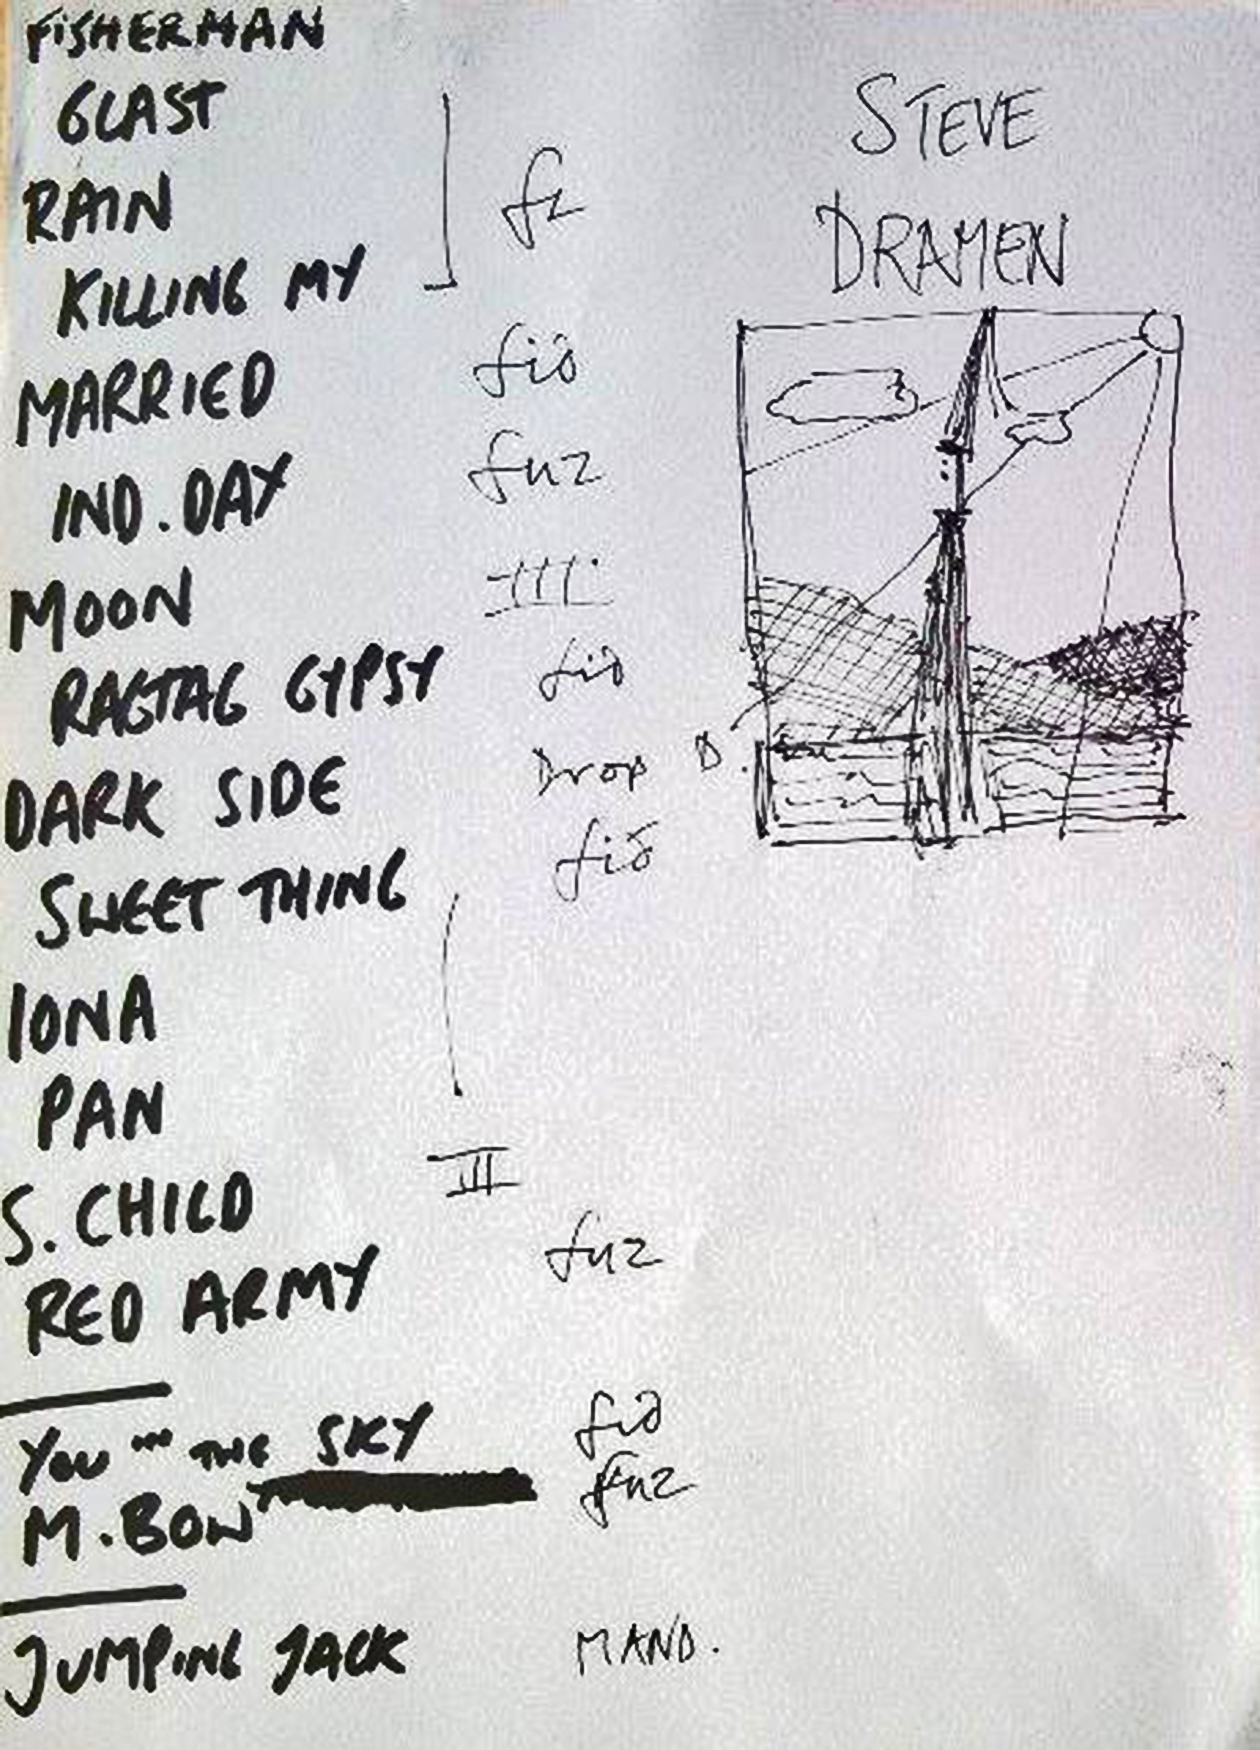 FISHERMAN
GLAST
RAIN
KILLING MY
MARRIED
IND. DAY
MOON
RAGTAG GYPSY
DARK SIDE
SWEET THING
IONA
PAN
S. CHILD
RED ARMY
YOU IN THE SKY
M. BOW
JUMPING JACK
fz
fid
fuz
III.
fid
Drop D.
fid
III
fuz
fid
fuz
MAND.
STEVE
DRAMEN